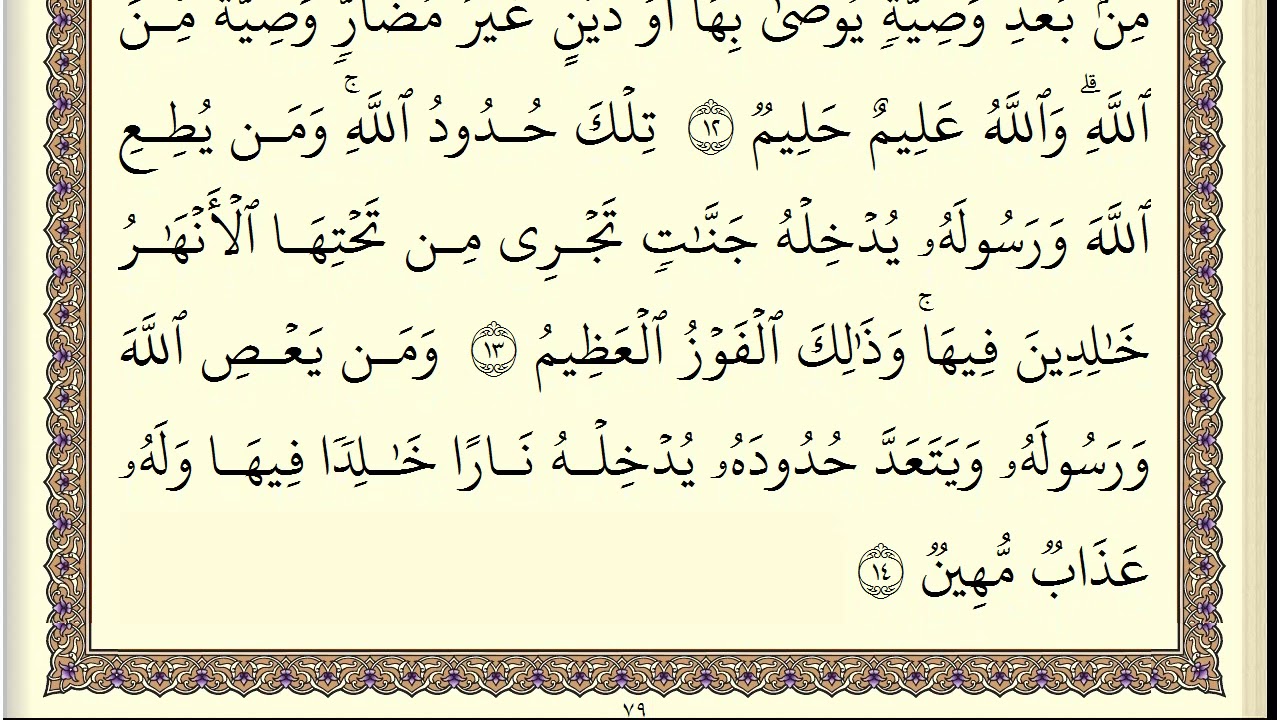 مِنۢ بَعۡدِ وَصِيَّةٖ يُوصَىٰ بِهَآ أَوۡ دَيۡنٍ غَيۡرَ مُضَآرّٖۚ وَصِيَّةٗ مِّـنَ
ٱللَّهِۗ وَٱللَّهُ عَلِيمٌ حَلِيمٞ ١٢ تِلۡكَ حُـدُودُ ٱللَّهِۚ وَمَـن يُطِـعِ
ٱللَّهَ وَرَسُولَهُۥ يُدۡخِلۡهُ جَنَّـٰتٖ تَجۡـرِى مِـن تَحۡتِهَـا ٱلۡأَنۡهَـٰرُ
خَـٰلِدِينَ فِيهَاۚ وَذَٰلِكَ ٱلۡفَوۡزُ ٱلۡعَظِيمُ ١٣ وَمَـن يَعۡـصِ ٱللَّهَ
وَرَسُولَهُۥ وَيَتَعَدَّ حُدُودَهُۥ يُدۡخِلۡـهُ نَـارًا خَـٰلِدٗا فِيهَـا وَلَهُۥ
عَذَابٞ مُّهِينٞ ١٤
٧٩